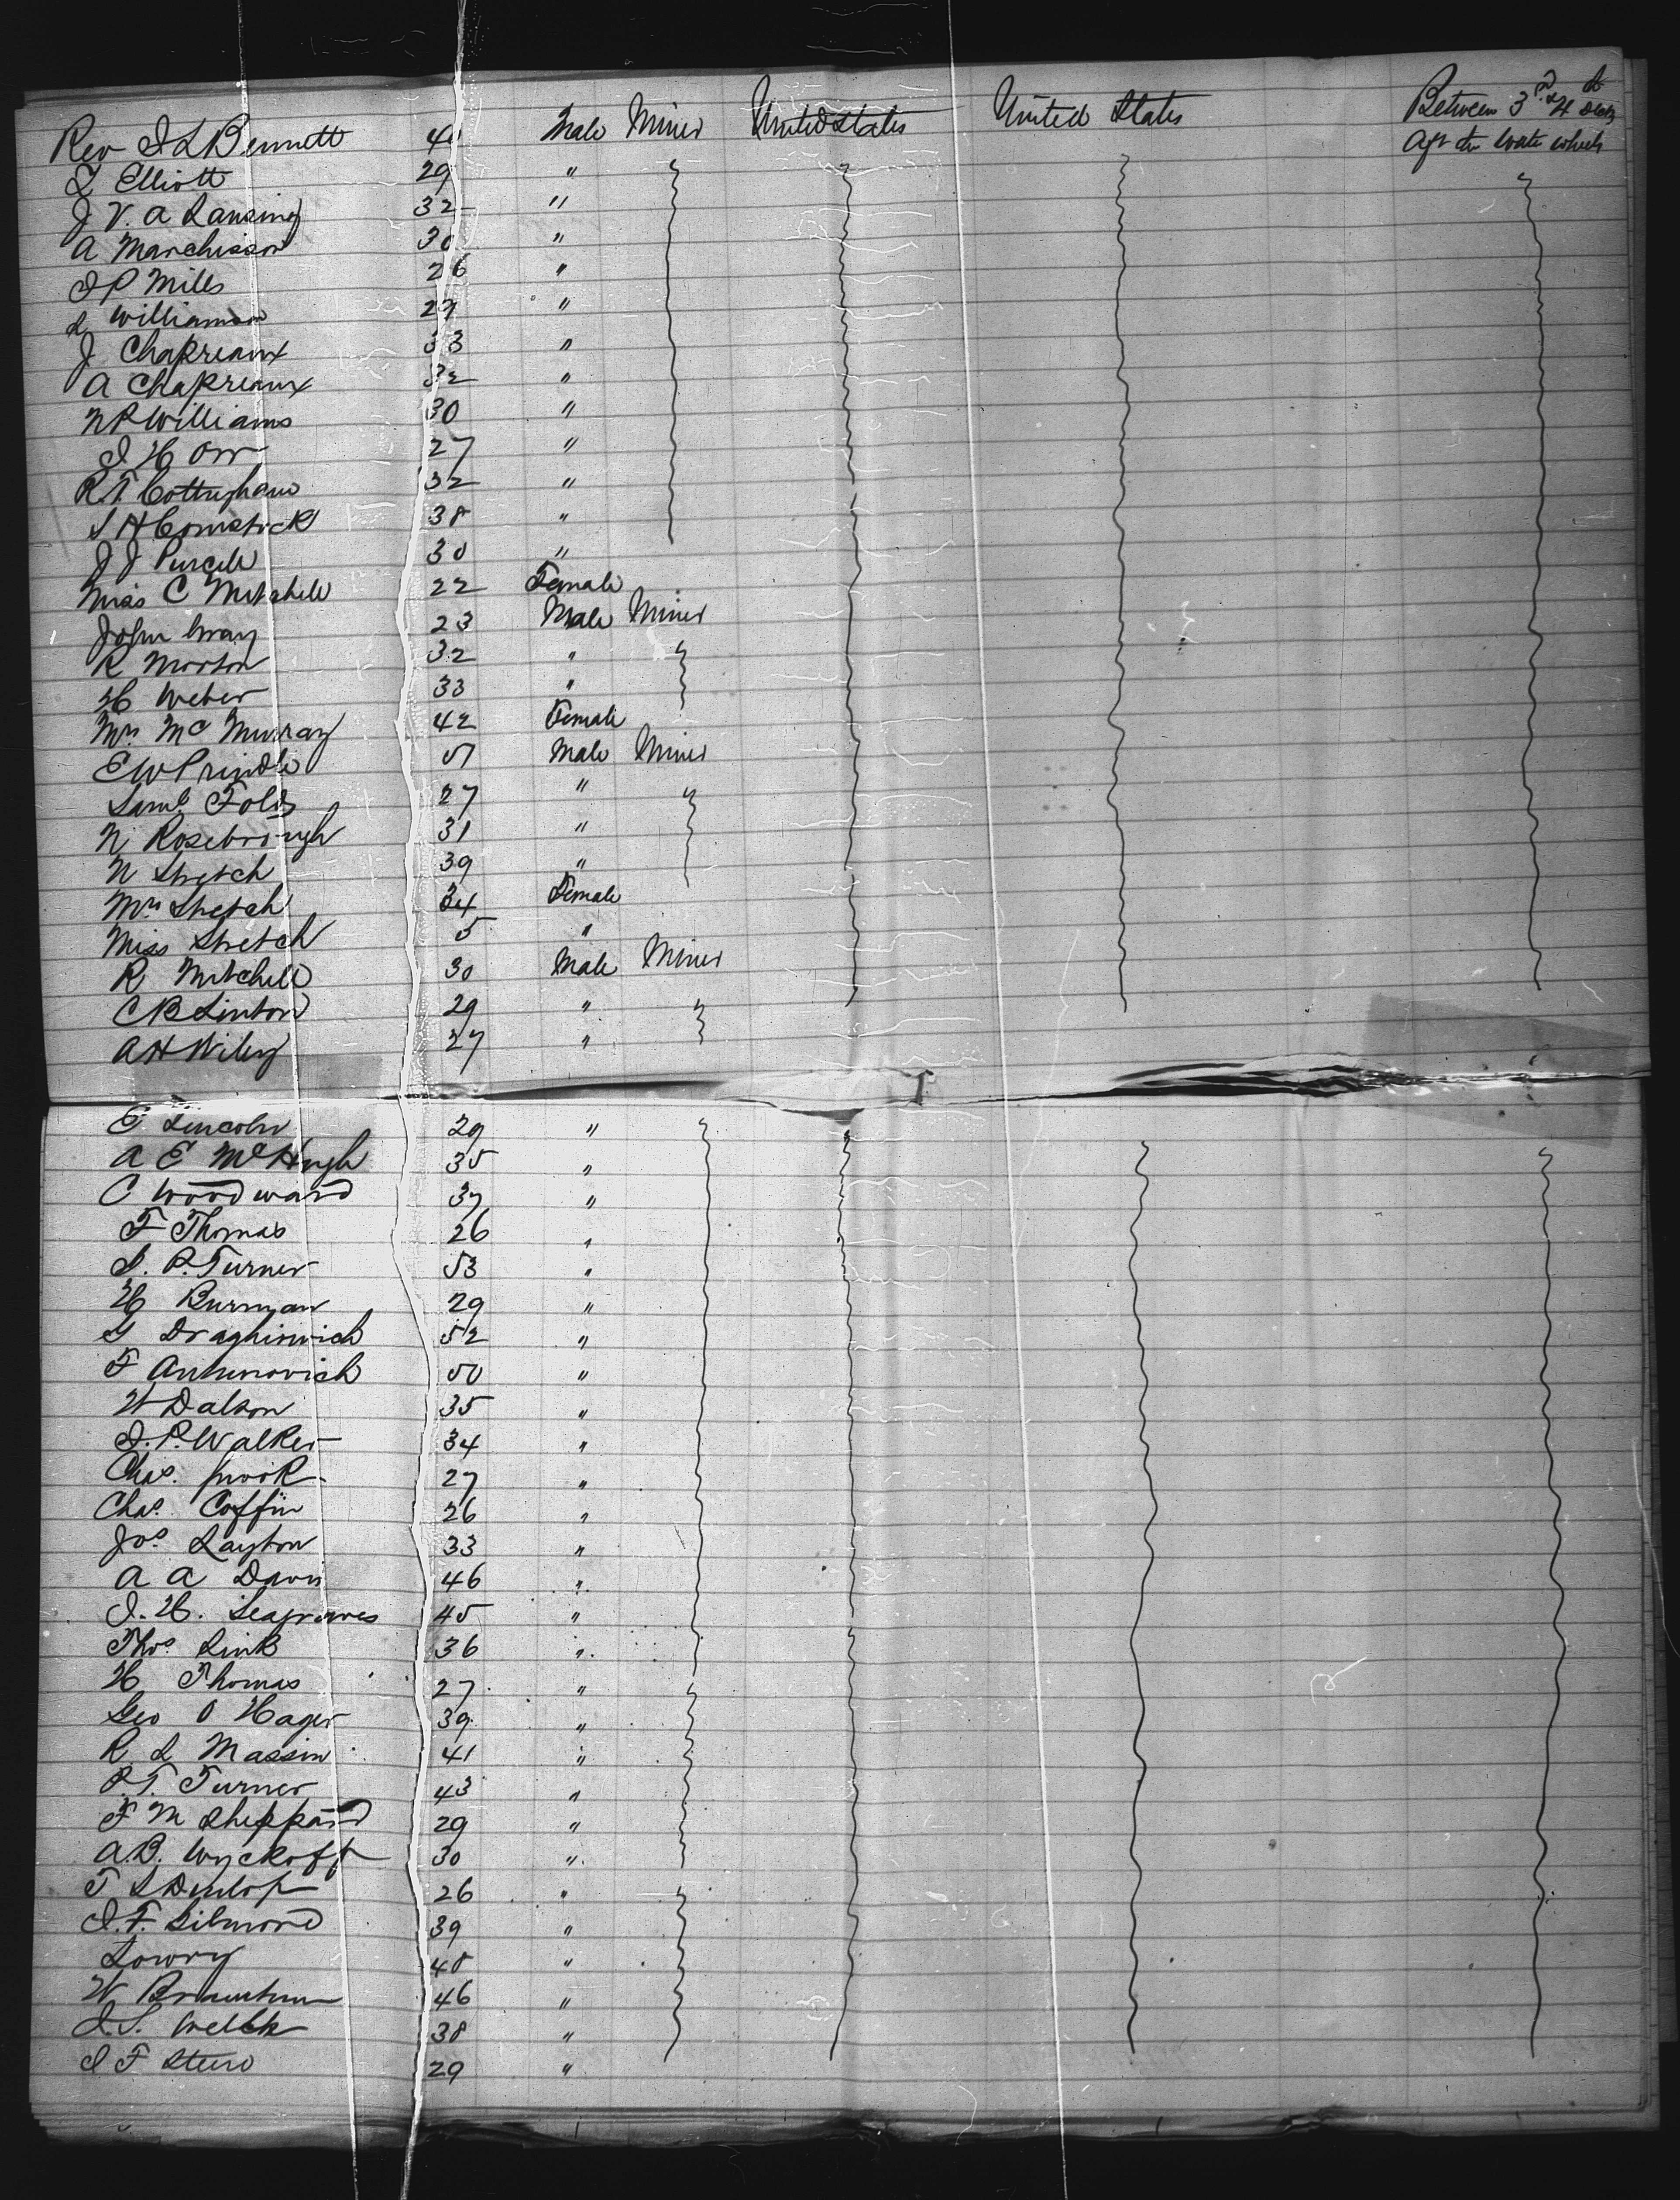 Rev I L Bennett 41 Male Miner United States United States Between 3rd & 4 deck
aft the water wheels
L Elliott 29 "
J V. A Lansing 32 "
A Marchisson 30 "
I P Mills 26 "
L Williamson 29 "
J Chapreaux 33 "
A Chapreaux 32 "
N P Williams 30 "
I H Orr 27 "
R. T. Cottingham 32 "
S H Comstock 38 "
J J Purcell 30 "
Miss C Mitchell 22 Female
John Gray 23 Male Miner
R Morton 32 "
H Weber 33 "
Mrs Mc Murray 42 Female
E W Prindle 51 Male Miner
Saml Folds 27 "
N Rosebrough 31 "
N Stretch 39 "
Mrs Stretch 34 Female
Miss Stretch 5 "
R Mitchell 30 Male Miner
C B Linton 29 "
A H Wiley 27 "
E Lincoln 29 "
A E McHugh 35 "
C Woodward 37 "
F Thomas 26 "
S. P. Turner 53 "
H Burnyan 29 "
G Draghinvich 52 "
F Antunovich 50 "
W Dalson 35 "
I. P. Walker 34 "
Chas. 27 "
Chas. Coffin 26 "
Jos Layton 33 "
A A Davis 46 "
I. H. Seagraves 45 "
Thos Link 36 "
H Thomas 27 "
Geo O Hager 39 "
R L Massin 41 "
P. T. Turner 43 "
F M Sheppard 29 "
A. B. Wyckoff 30 "
T S Dunlop 26 "
I. F. Gilmore 39 "
Lowry 48 "
W 46 "
I. S. Welch 38 "
I F 29 "